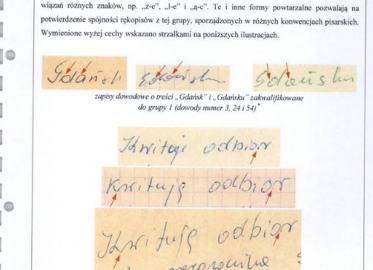 wiązań różnych znaków, np. „ż-e", „l-e" i „ą-c". Te i inne formy powtarzalne pozwalają na
potwierdzenie spójności rękopisów z tej grupy, sporządzonych w różnych konwencjach pisarskich.
Wymienione wyżej cechy wskazano strzałkami na poniższych ilustracjach.
Gdańsk Gdańsku Gdańsku
zapisy dowodowe o treści „Gdańsk" i „Gdańsku" zakwalifikowane
do grupy 1 (dowody numer 3, 24 i 54)*
Kwituję odbiór
Kwituję odbiór
Kwituję odbiór